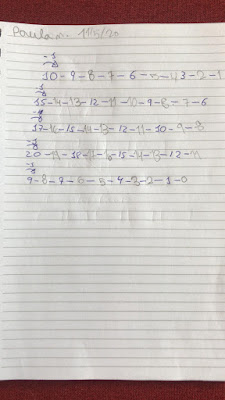 Paula m. 11/5/20
-1
10-9-8-7-6-5-4 3-2-1
-1
15-14-13-12-11-10-9-8-7-6
-1
17-16-15-14-13-12-11-10-9-8
-1
20-19-18-17-16-15-14-13-12-11
-1
9-8-7-6-5-4-3-2-1-0